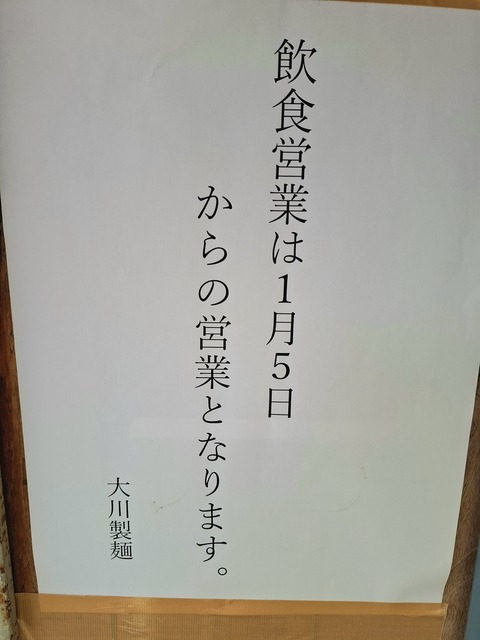 飲食営業は1月5日
からの営業となります。
大川製麺